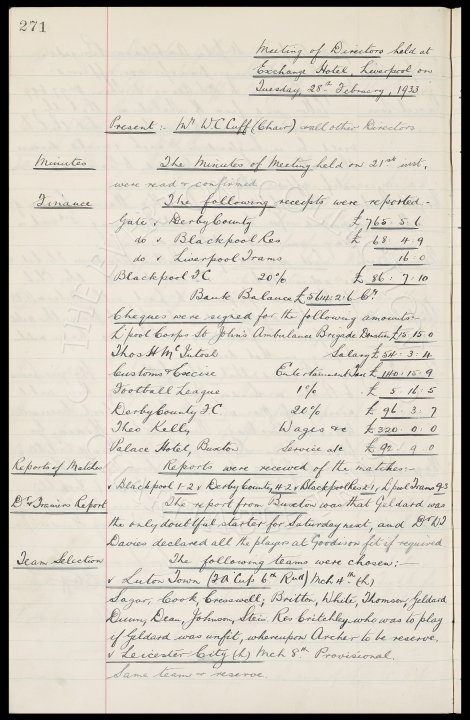 271
Meeting of Directors held at
Exchange Hotel, Liverpool on
Tuesday, 28th February, 1933
Present:- Mr W C Cuff (Chair) and all other Directors
Minutes The Minutes of Meeting held on 21st inst.
were read & confirmed
Finance The following receipts were reported:-
Gate v Derby County £ 765 . 5 . 6
do v Blackpool Res £ 68 . 4 . 9
do v Liverpool Trams 16 . 0
Blackpool FC 20% £ 86 . 7 . 10
Bank Balance £ 5614 . 2 . 6 Cr
Cheques were signed for the following amounts:-
L'pool Corps St John's Ambulance Brigade Donation £ 15 . 15 . 0
Thos H McIntosh Salary £ 54 . 3 . 4
Customs & Excise Entertainment Tax £ 140 . 15 . 9
Football League 1% £ 5 . 16 . 5
Derby County FC 20% £ 96 . 3 . 7
Theo Kelly Wages &c £ 320 . 0 . 0
Palace Hotel, Buxton Service a/c £ 92 . 9 . 0
Reports of Matches Reports were received of the matches:-
v Blackpool 1-2 v Derby County 4-2 v Blackpool Res 2-1, L'pool Trams 9-3
Dr & Trainers Report The report from Buxton was that Geldard was
the only doubtful starter for Saturday next, and
Davies declared all the players at Goodison fit if required
Team Selection The following teams were chosen:-
v Luton Town (FA Cup 6th Rnd) Mch 4th (h)
Sagar, Cook, Cresswell, Britton, White, Thomson, Geldard
Dunn, Dean, Johnson, Stein Res Critchley who was to play
if Geldard was unfit, whereupon Archer to be reserve.
v Leicester City (h) Mch 8th Provisional.
Same team & reserve.